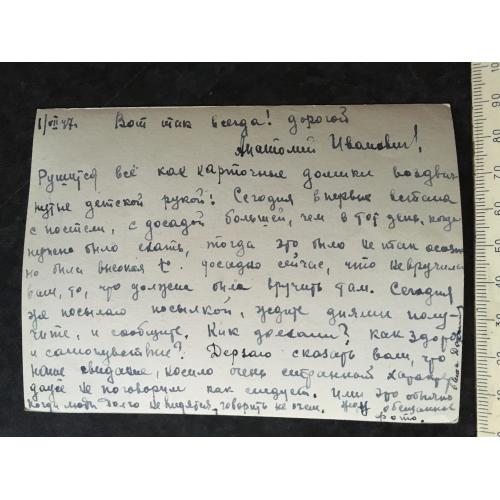 1/VII 47. Вот так всегда! дорогой
Анатолий Иванович!
Рушится всё как карточные домики воздвиг
нутые детской рукой! Сегодня впервые встала
с постели, с досадой большей, чем в тот день, когда
нужно было ехать, тогда это было не так
но была высокая t°. досадно сейчас, что не вручила
вам, то, что должна была вручить там. Сегодня
же посылаю посылкой, ждите днями полу-
чите, и сообщите. Как доехали? как здоро
и самочувствие? Дерзаю сказать вам, что
наше свидание, носило очень странный характер
даже не поговорили как следует. Или это обычно
когда люди долго не видятся, говорить не о чем. Жду обещанное
фото.